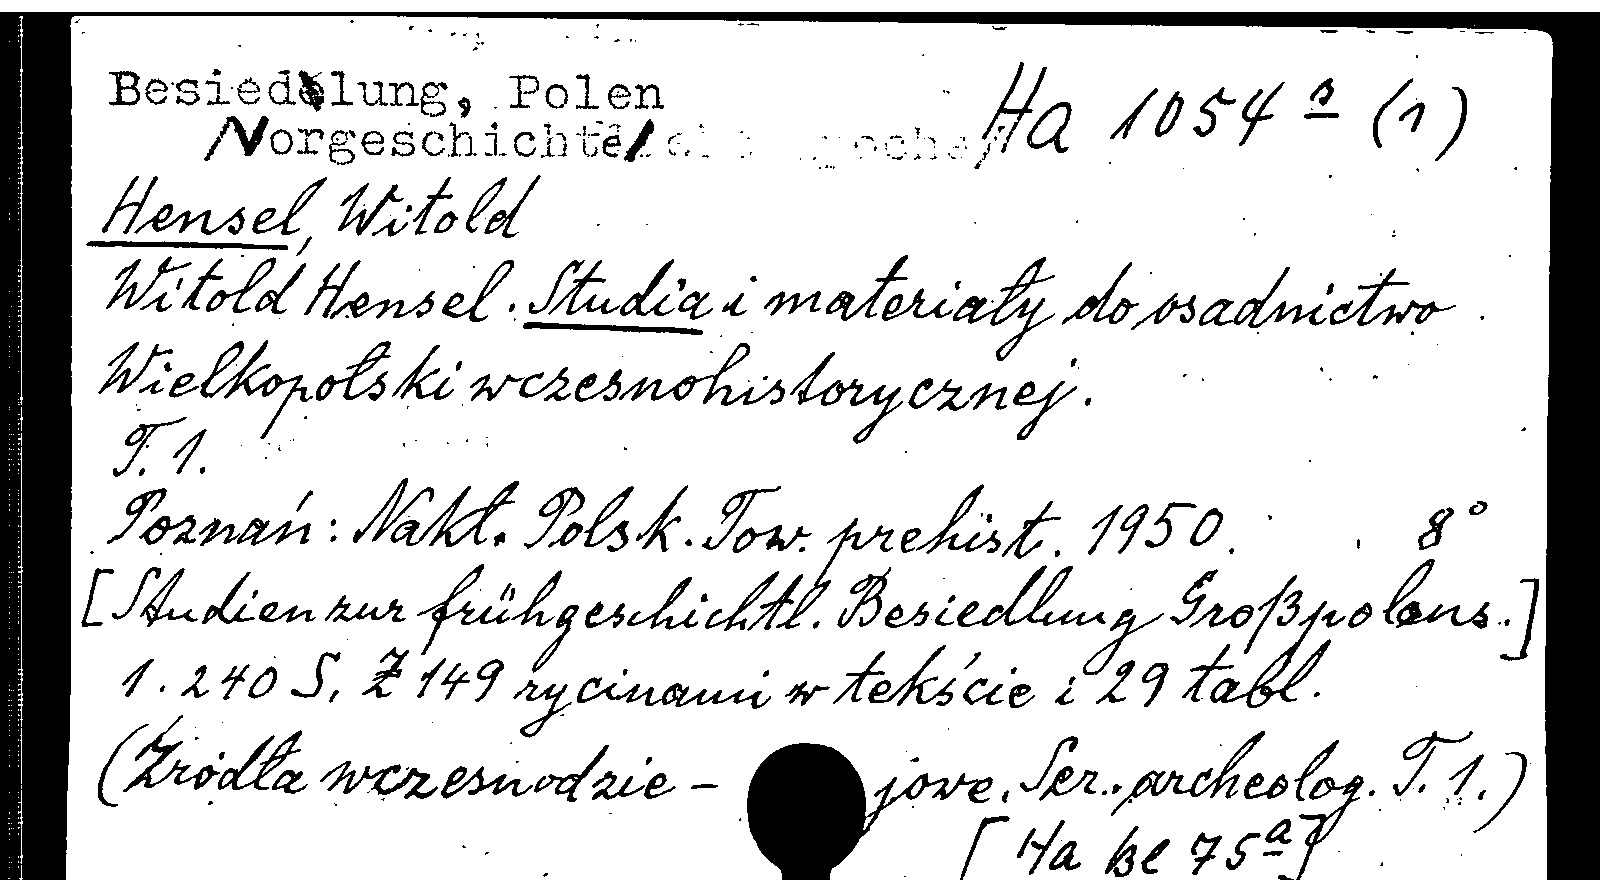 Besiedlung, Polen
/Vorgeschichte/
Ha 1054 a (1)
Hensel, Witold
Witold Hensel. Studia i materiały do osadnictwo
Wielkopołski wczesnohistorycznej.
T. 1.
Poznań: Nakł. Polsk. Tow. prehist. 1950. 8°
[Studien zur frühgeschichtl. Besiedlung Großpolens.]
1. 240 S. Z 149 rycinami w tekście i 29 tabl.
(Źródła wczesnodzie- jowe. Ser. archeolog. T. 1.)
[Ha be 75a]